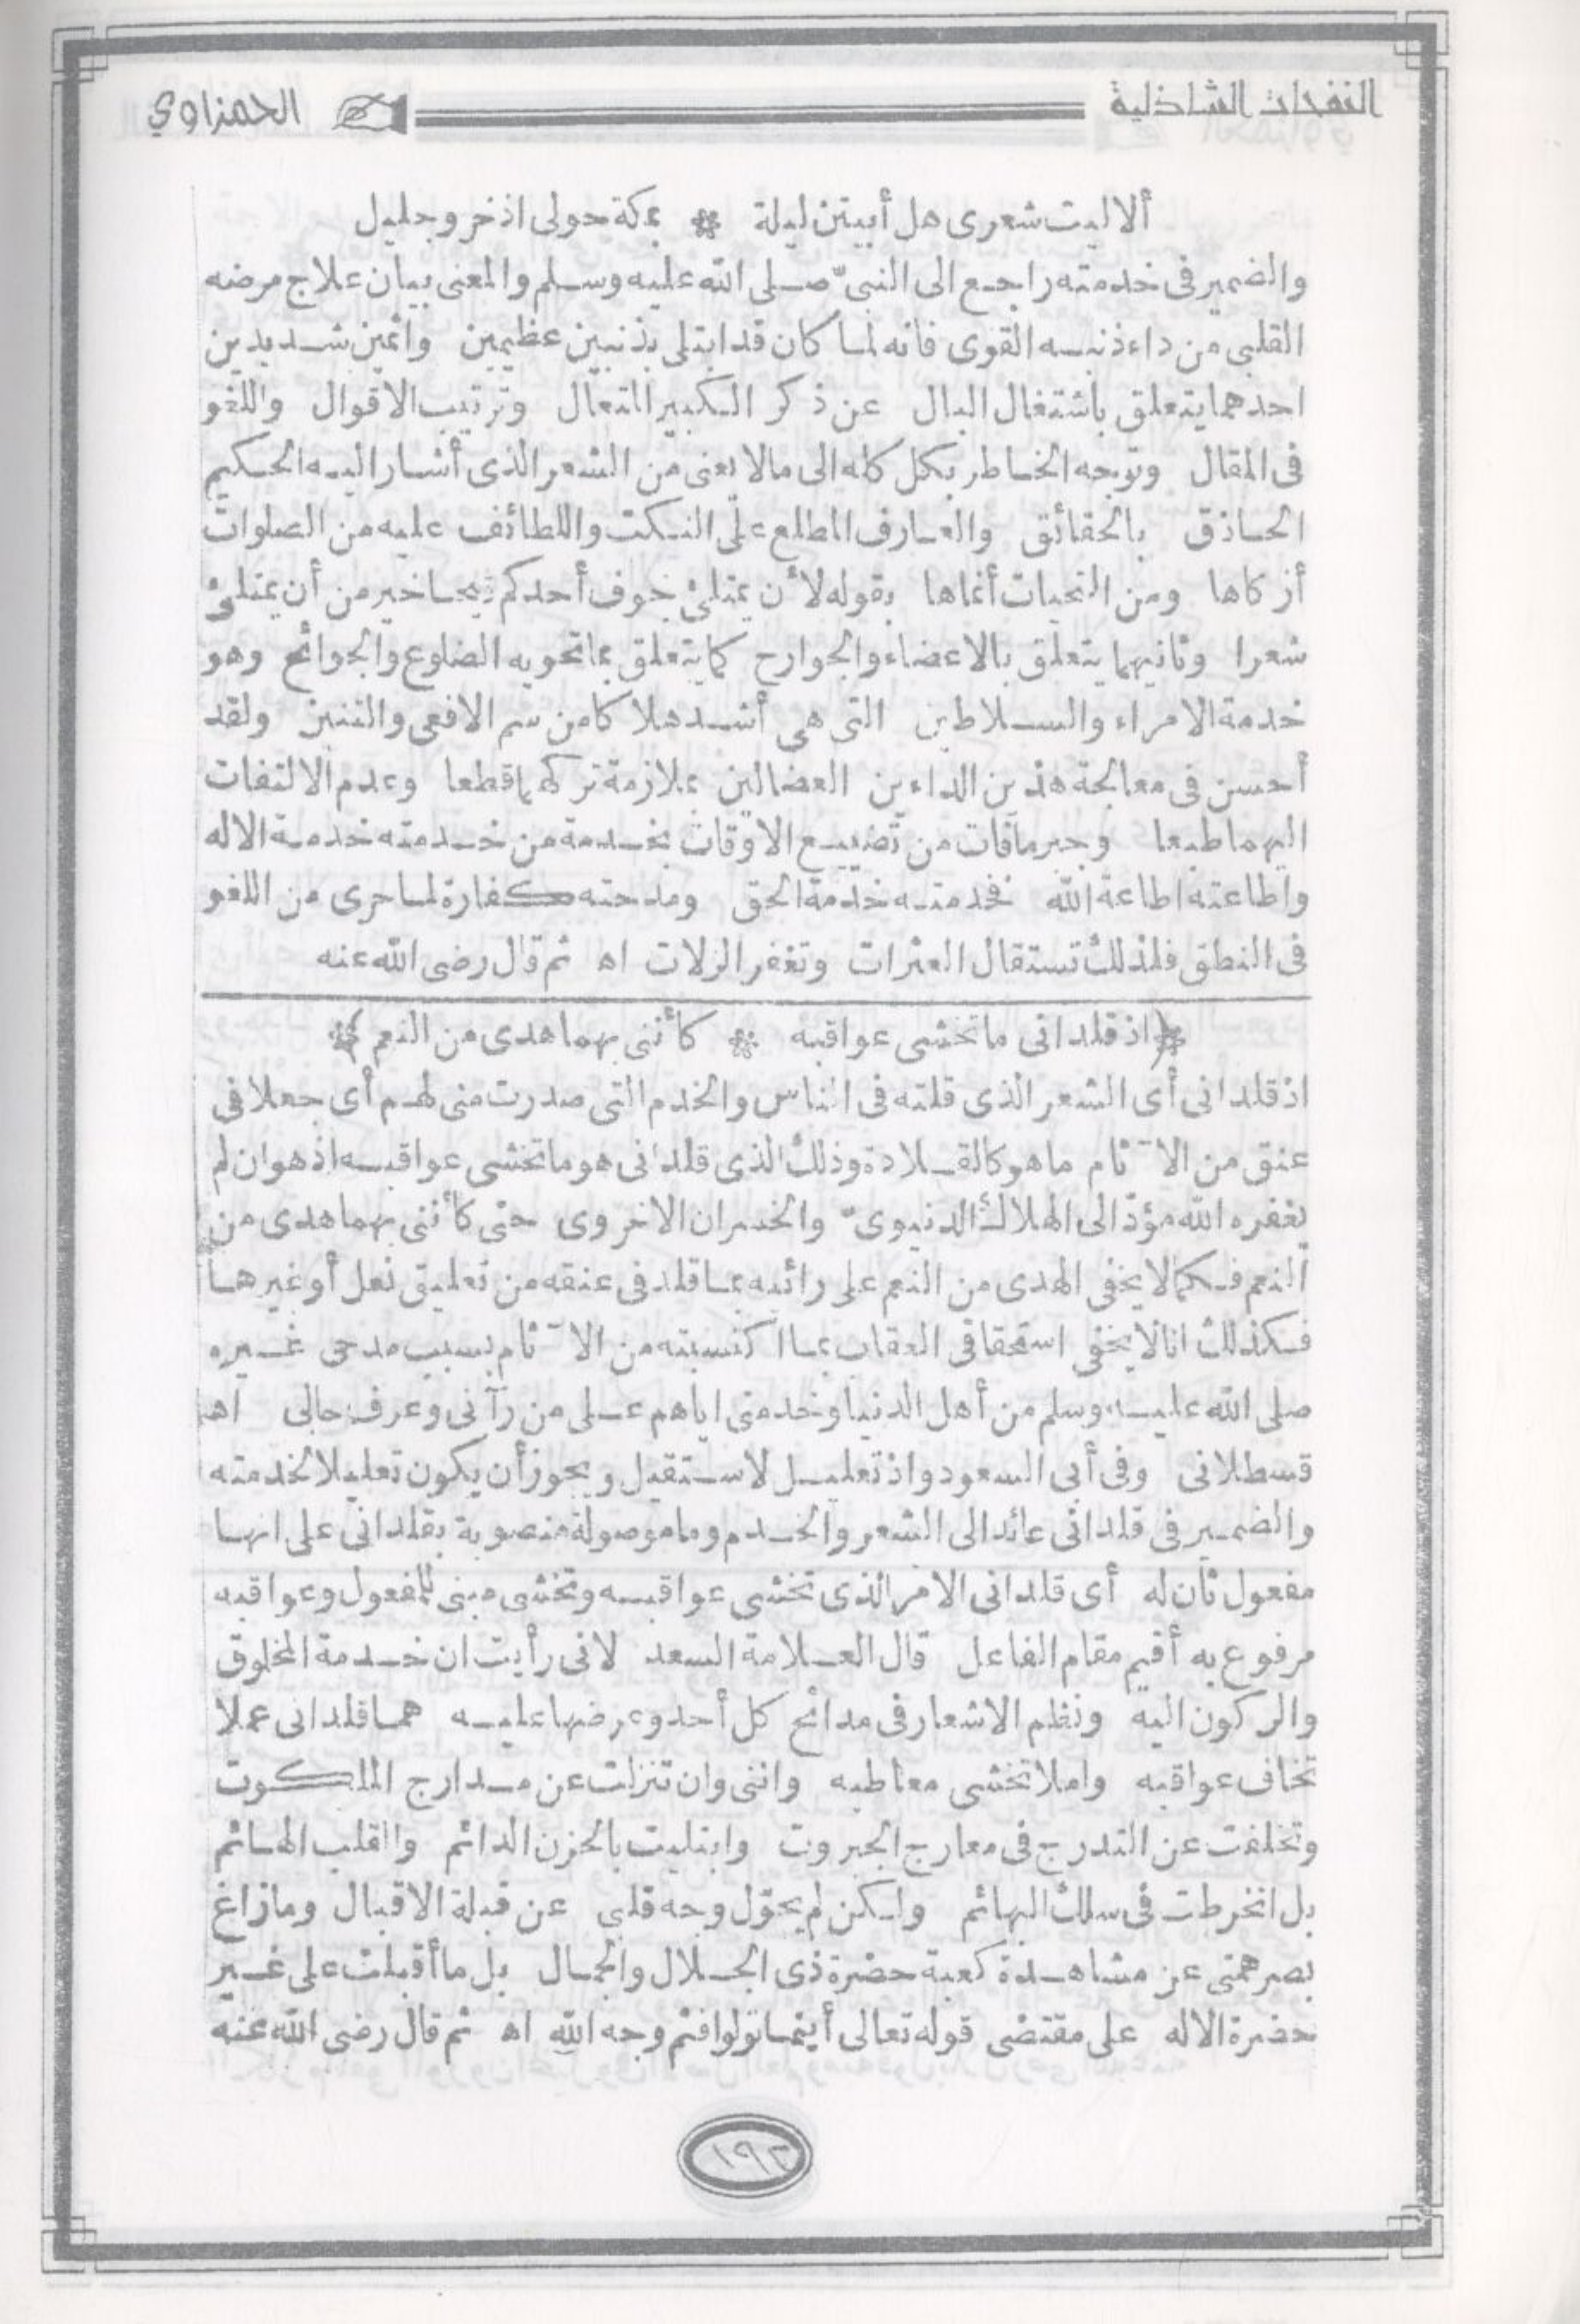 النفحات الشاذلية الحمزاوي
ألا ليت شعرى هل أبيتن ليلة * بمكة حولى اذخر وجليل
والضمير فى خدمته راجع الى النبىّ صلى الله عليه وسلم والمعنى بيان علاج مرضه
القلبى من داء ذنبه القوى فانه لما كان قد ابتلى بذنبين عظيمين واثمين شديدين
احدهما يتعلق باشتغال البال عن ذكر الكبير المتعال وترتيب الاقوال واللغو
فى المقال وتوجه الخاطر بكل كله الى مالا يعنى من الشعر الذى أشار اليه الحكيم
الحاذق بالحقائق والعارف المطلع على النكت واللطائف عليه من الصلوات
أزكاها ومن التحيات أنماها بقوله لأن يمتلئ جوف أحدكم قيحا خير من أن يمتلئ
شعرا وثانيهما يتعلق بالاعضاء والجوارح كما يتعلق بما تحويه الضلوع والجوانح وهو
خدمة الامراء والسلاطين التى هى أشد هلاكا من سم الافعى والتنين ولقد
أحسن فى معالجة هذين الداءين العضالين بملازمة تركهما قطعا وعدم الالتفات
اليهما طبعا وجبر مافات من تضييع الاوقات بخدمة من خدمته خدمة الاله
واطاعته اطاعة الله فخدمته خدمة الحق ومدحته كفارة لما جرى من اللغو
فى النطق فلذلك تستقال العثرات وتغفر الزلات اه ثم قال رضى الله عنه
﴿اذ قلدانى ما تخشى عواقبه * كأننى بهما هدى من النعم﴾
اذ قلدانى أى الشعر الذى قلته فى الناس والخدم التى صدرت منى لهم أى جعلا فى
عنق من الآثام ما هو كالقلادة وذلك الذى قلدانى هو ما تخشى عواقبه اذ هو ان لم
يغفره الله مؤدّ الى الهلاك الدنيوىّ والخسران الاخروى حتى كأننى بهما هدى من
النعم فكما لا يخفى الهدى من النعم على رائيه بما قلد فى عنقه من تعليق نعل أو غيرها
فكذلك انا لا يخفى استحقاقى العقاب بما اكتسبته من الآثام بسبب مدحى غيره
صلى الله عليه وسلم من أهل الدنيا وخدمتى اياهم على من رآنى وعرف حالى اه
قسطلانى وفى أبى السعود واذ تعليل لاستقيل ويجوز أن يكون تعليلا لخدمته
والضمير فى قلدانى عائد الى الشعر والخدم وما موصولة منصوبة بقلدانى على انها
مفعول ثان له أى قلدانى الامر الذى تخشى عواقبه وتخشى مبنى للمفعول وعواقبه
مرفوع به أقيم مقام الفاعل قال العلامة السعد لانى رأيت ان خدمة المخلوق
والركون اليه ونظم الاشعار فى مدائح كل أحد وعرضها عليه هما قلدانى عملا
تخاف عواقبه واملا تخشى معاطبه واننى وان تنزلت عن مدارج الملكوت
وتخلفت عن التدرج فى معارج الجبروت وابتليت بالحزن الدائم والقلب الهائم
بل انخرطت فى سلك البهائم ولكن لم يحوّل وجه قلبى عن قبلة الاقبال ومازاغ
بصر همتى عن مشاهدة كعبة حضرة ذى الجلال والجمال بل ما أقبلت على غير
حضرة الاله على مقتضى قوله تعالى أينما تولوا فثم وجه الله اه ثم قال رضى الله عنه
١٩٢